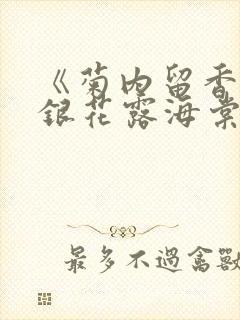 《菊内留香
銀花露海棠
最多不過禽獸